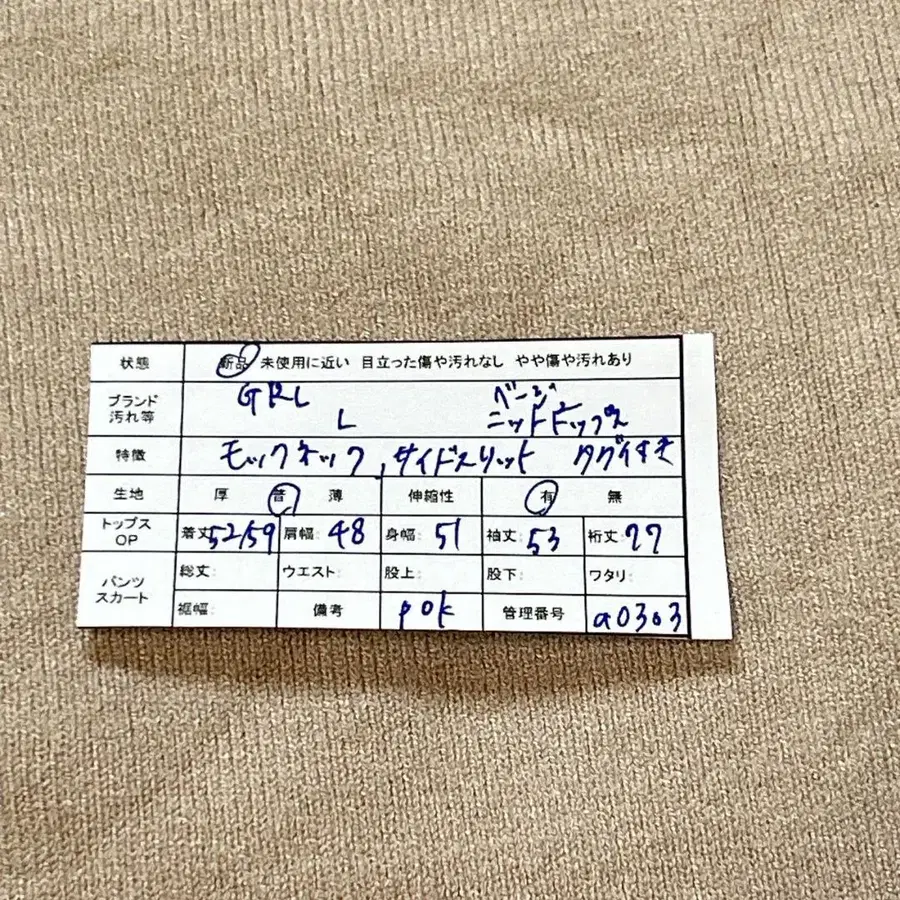 状態 新品 未使用に近い 目立った傷や汚れなし やや傷や汚れあり
ブランド GRL ベージュ
汚れ等 L ニットトップス
特徴 モックネック、サイドスリット タグイすき
生地 厚 普 薄 伸縮性 有 無
トップス OP 着丈:52/59 肩幅:48 身幅:51 袖丈:53 裄丈:77
パンツ スカート 総丈: ウエスト: 股上: 股下: ワタリ:
裾幅: 備考 pok 管理番号 a0303